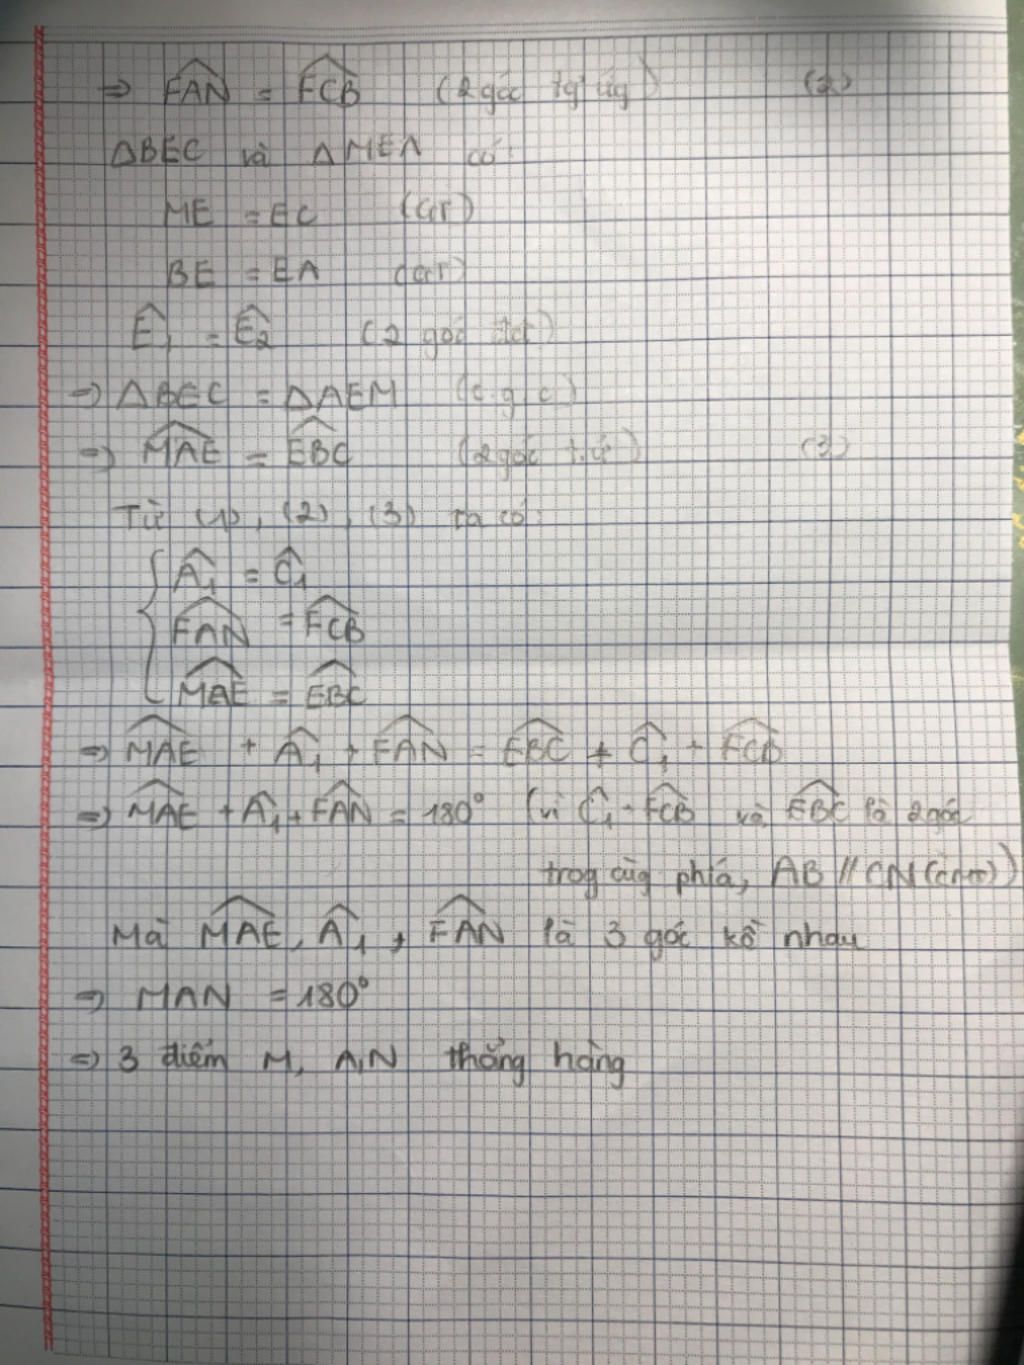 ⇒ FAN = FCB (2 góc tg ứg) (2)
ΔBEC và ΔMEA có:
ME = EC (GT)
BE = EA (GT)
Ê₁ = Ê₂ (2 góc đđ)
⇒ ΔBEC = ΔAEM (c.g.c)
⇒ MAE = EBC (2 góc t.ứ) (3)
Từ (1), (2), (3) ta có:
Â₁ = Ĉ₁
FAN = FCB
MAE = EBC
⇒ MAE + Â₁ + FAN = EBC + Ĉ₁ + FCB
⇒ MAE + Â₁ + FAN = 180° (vì Ĉ₁ + FCB và EBC là 2 góc
trog cùg phía, AB // CN (cmt))
Mà MAE, Â₁, FAN là 3 góc kề nhau
⇒ MAN = 180°
⇒ 3 điểm M, A, N thẳng hàng